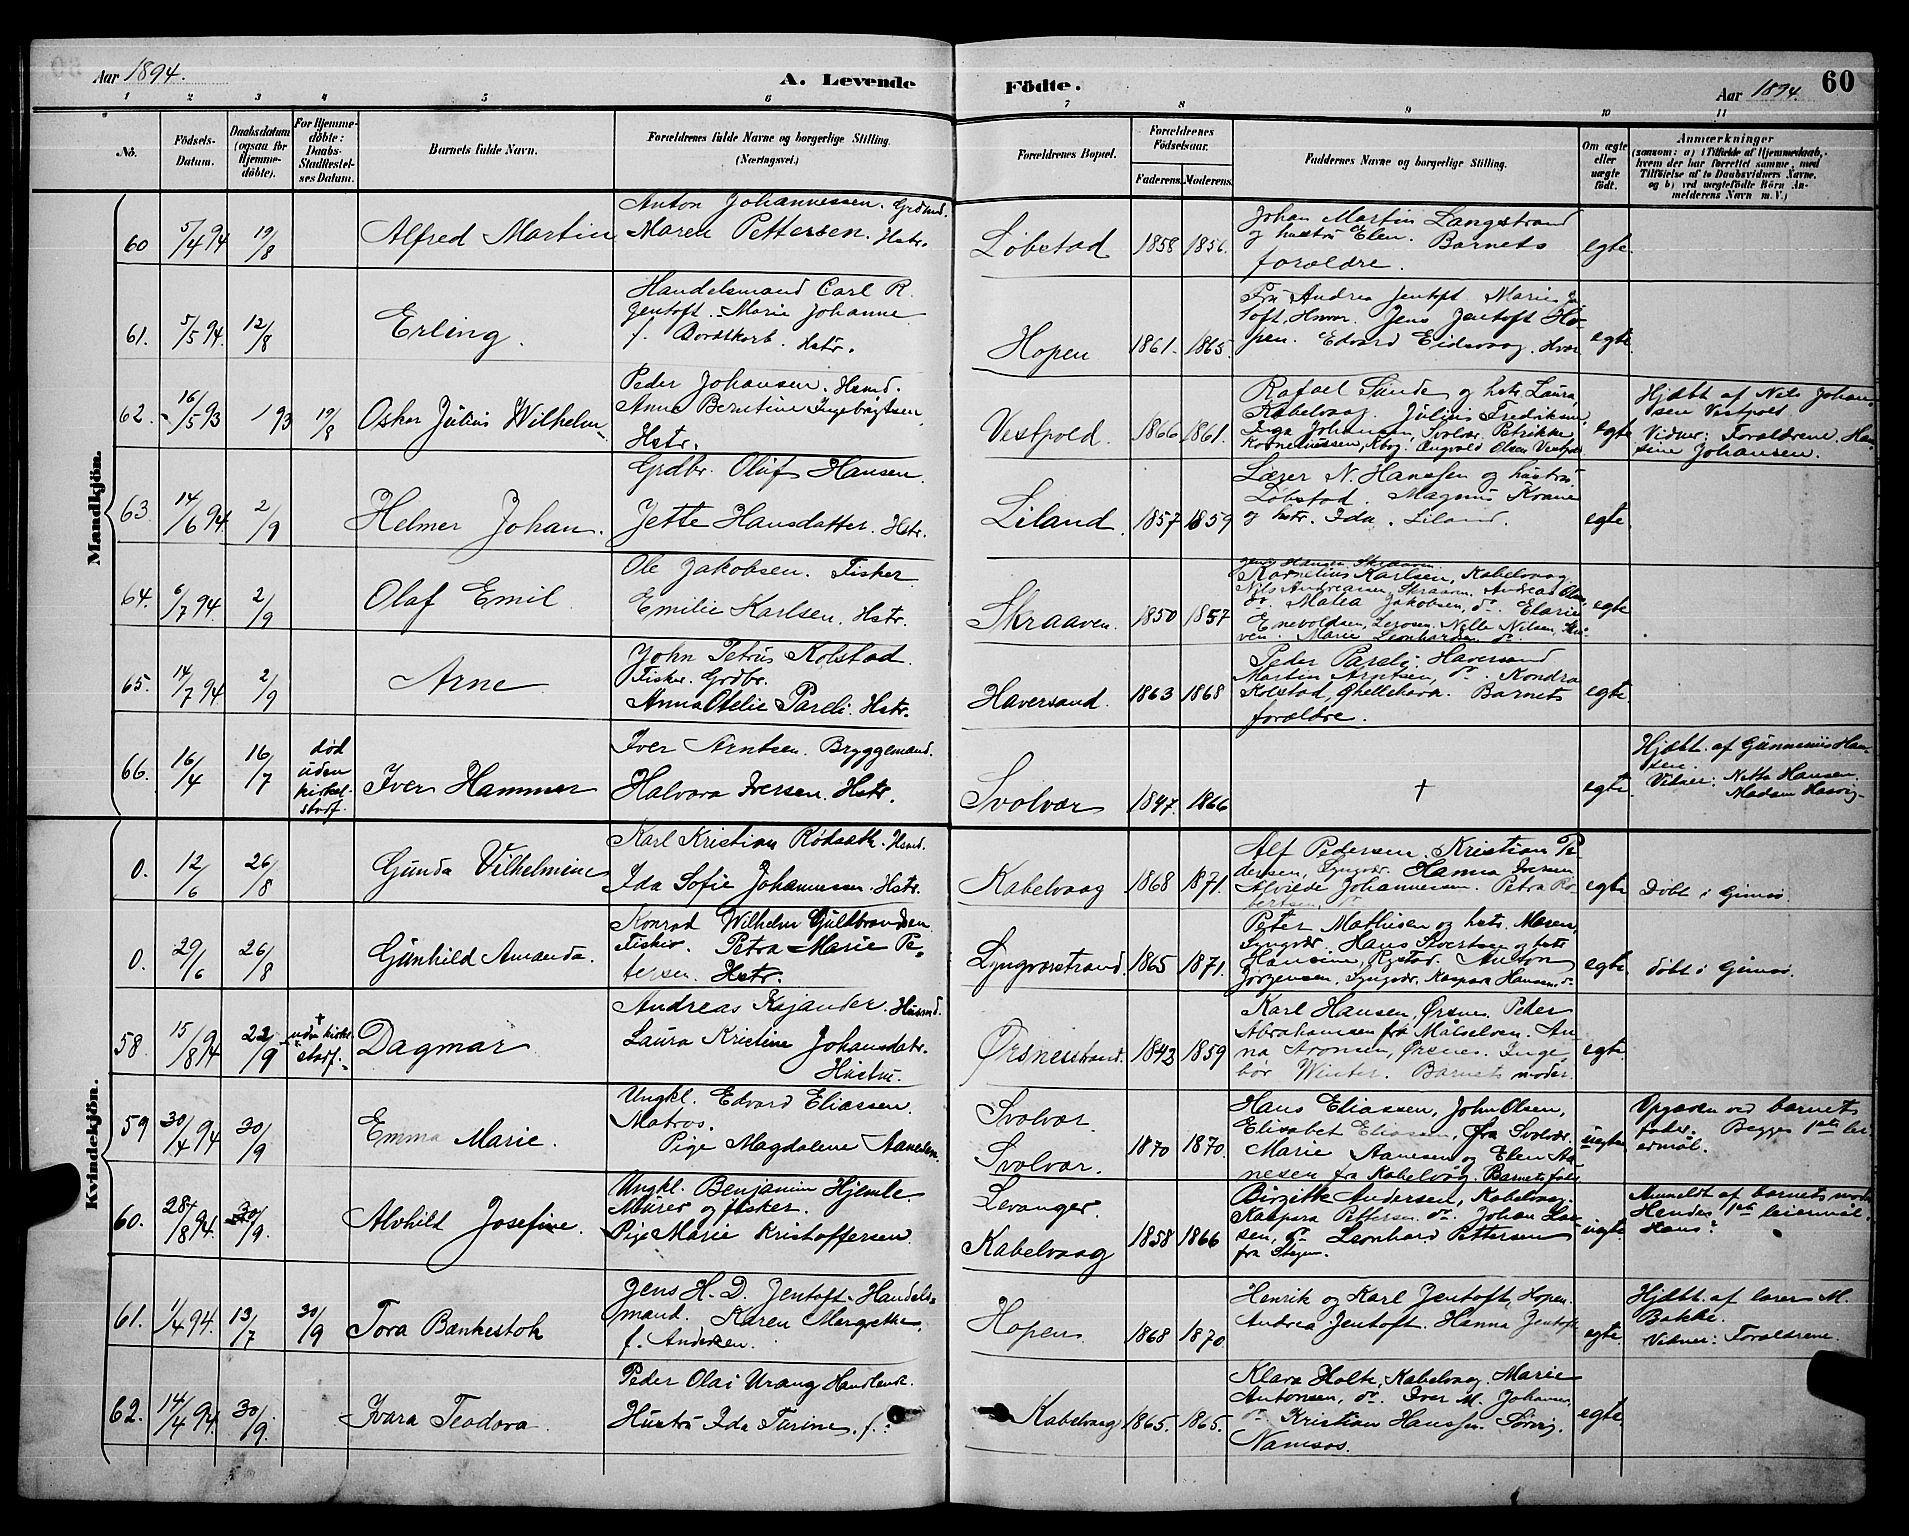 Aar 1894.
A. Levende
Födte.
Aar 1894.
60
1 2 3 4 5 6 7 8 9 10 11
No.
Födsels-
Datum.
Daabsdatum
(ogsaa for
Hjemme-
döbte).
For Hjemme-
döbte:
Daabs-
Stadfæstel-
ses Datum.
Barnets fulde Navn.
Forældrenes fulde Navne og borgerlige Stilling.
(Næringsvei.)
Forældrenes Bopæl.
Forældrenes
Födselsaar.
Faderens. Moderens.
Faddernes Navne og borgerlige Stilling.
Om ægte
eller
uægte
födt.
Anmærkninger
(saasom: a) i Tilfælde af Hjemmedaab,
hvem der har forrettet samme, med
Tilföielse af to Daabsvidners Navne.
og b) ved uægtefödte Börn An-
melderens Navn m. V.)
Mandkjön.
60 5/4 94 19/8 Alfred Martin
Anton Johannessen. Grdmd.
Maren Pettersen. Hstr.
Löbstad 1858 1856.
Johan Martin Langstrand
og hustru Elen. Barnets
forældre.
egte
61. 5/5 94. 12/8 Erling.
Handelsmand Carl R.
Jentoft. Marie Johanne
f. Bordstkorb. Hstr.
Hopen 1861. 1865.
Fru Andrea Jentoft. Marie
Jens Jentoft Ho-
pen. Edvard Eidsvaag.
egte.
62. 16/5 93 1 93 19/8 Oskar Julius Wilhelm
Peder Johansen. Hsmd.
Anne Berntine Ingebrigtsen
Hstr.
Vestpold. 1866 1861.
Rafael Sunde og hstr. Laura,
Kabelvaag. Julius Fredriksen
Inga Johansen, Svolvær. Petrikke
Korneliussen, Kbvg. Angvald Olsen Vestpold
egte
Hjdbt af Nils Johan-
sen Vestpold.
Vidner: Forældrene. Han-
sine Johansen.
63. 14/6 94. 2/9 Helmer Johan.
Grdbr. Oluf Hansen.
Jette Hansdatter. Hstr.
Liland 1857 1859
Lærer N. Hanssen og hustru.
Löbstad. Magnus Krane
og hstr. Ida. Liland.
egte.
64. 6/7 94. 2/9 Olaf Emil
Ole Jakobsen. Fisker
Emilie Karlsen. Hstr.
Skraaven. 1850 1857
Jens Hansen Skraaven.
Kornelius Karlsen, Kabelvaag
Nils Andreassen, Skraaven. Andreas Olsen
do. Malea Jakobsen, do. Elarie
Enevoldsen, Lerosen. Nille Nilsen, Skr-
ven. Marie Leonhardsen do
egte
65. 14/7 94 2/9 Arne
John Petrus Kolstad.
Fisker. Grdbr.
Anna Otelie Pareli. Hstr.
Haversand. 1863 1868
Peder Pareli, Haversand
Martin Arntsen, do. Kondra
Kolstad, Barnets
forældre.
egte
66. 16/4 16/7 död
uden
kirkel.
stadf. Iver Hammer
Iver Arntsen. Bryggemand.
Halvara Iversen. Hstr.
Svolvær 1847. 1866
†
egte.
Hjdbt. af Gunnerius Han-
sen.
Vidner: Netta Hansen.
Madam Hasvig
Kvindekjön.
0. 12/6 26/8 Gunda Vilhelmine
Karl Kristian Rödsæth. Hsmd.
Ida Sofie Johannessen. Hstr.
Kabelvaag 1868 1871.
Alf Pedersen. Kristian Pe-
dersen, Lyngvær. Hanna Iversen
Alvilde Johannesen. Petra Ro-
bertsen, do
egte
Döbt i Gimsö.
0. 29/6 26/8 Gunhild Amanda.
Konrad Wilhelm Guldbrandsen
Fisker. Petra Marie Pe-
tersen. Hstr.
Lyngværstrand 1865 1871.
Peter Mathisen og hstr. Maren,
Lyngvær. Hans Sivertsen og hstr
Hansine, Rystad. Anton
Jörgensen, Lyngvær. Kaspara Hansen, do
egte.
döbt i Gimsö.
58. 15/8 94 22/9 † uden kirkl.
stadf. Dagmar
Andreas Kajander. Husmd.
Laura Kristine Johansdatr.
Hustru.
Ørsnesstrand. 1843 1859
Karl Hansen, Ørsnes. Peder
Abrahamsen fra Målselven. An-
na Aronsen, Ørsnes. Inge-
bör Winter. Barnets moder.
egte
59 30/4 94 30/9 Emma Marie.
Ungkl. Edvard Eliassen.
Matros.
Pige Magdalene Aanesen.
Svolvær.
Svolvær. 1870 1870.
Hans Eliassen, John Olsen,
Elisabet Eliasen, fra Svolvær.
Marie Aanesen og Elen Aa-
nesen fra Kabelvåg. Barnets fader
uegte
Opgaven ved barnets
fader. Begges 1ste lei-
ermål.
60. 28/8 94. 30/9. Alvhild Josefine.
Ungkl. Benjamin Hjemle
Murer og fisker.
Pige Marie Kristoffersen
Levanger.
Kabelvaag 1858 1866
Birgitte Andersen, Kabelvaag.
Kaspara Pettersen do. Johan Lar-
sen, do Leonhard Pettersen
fra Stegen.
uegte.
Anmeldt af barnets moder
Hendes 1ste leiermål.
Hans?
61. 1/4 94. 13/7 30/9 Tora Bankestok
Jens H. D. Jentoft. Handels-
mand. Karen Margrethe
f. Andersen.
Hopen 1868 1870
Henrik og Karl Jentoft, Hopen.
Andrea Jentoft. Hanna Jentoft
egte.
Hjdbt. af lærer M.
Bakke.
Vidner: Forældrene.
62. 14/4 94 30/9. Ivara Teodora
Peder Olai Urang Handlende.
Hustru Ida Turine. f.?
Kabelvaag 1865. 1865.
Klara Holte, Kabelvaag Marie
Antonsen, do. Iver M. Johansen
do Kristian Hanssen.
Namsos.
egte